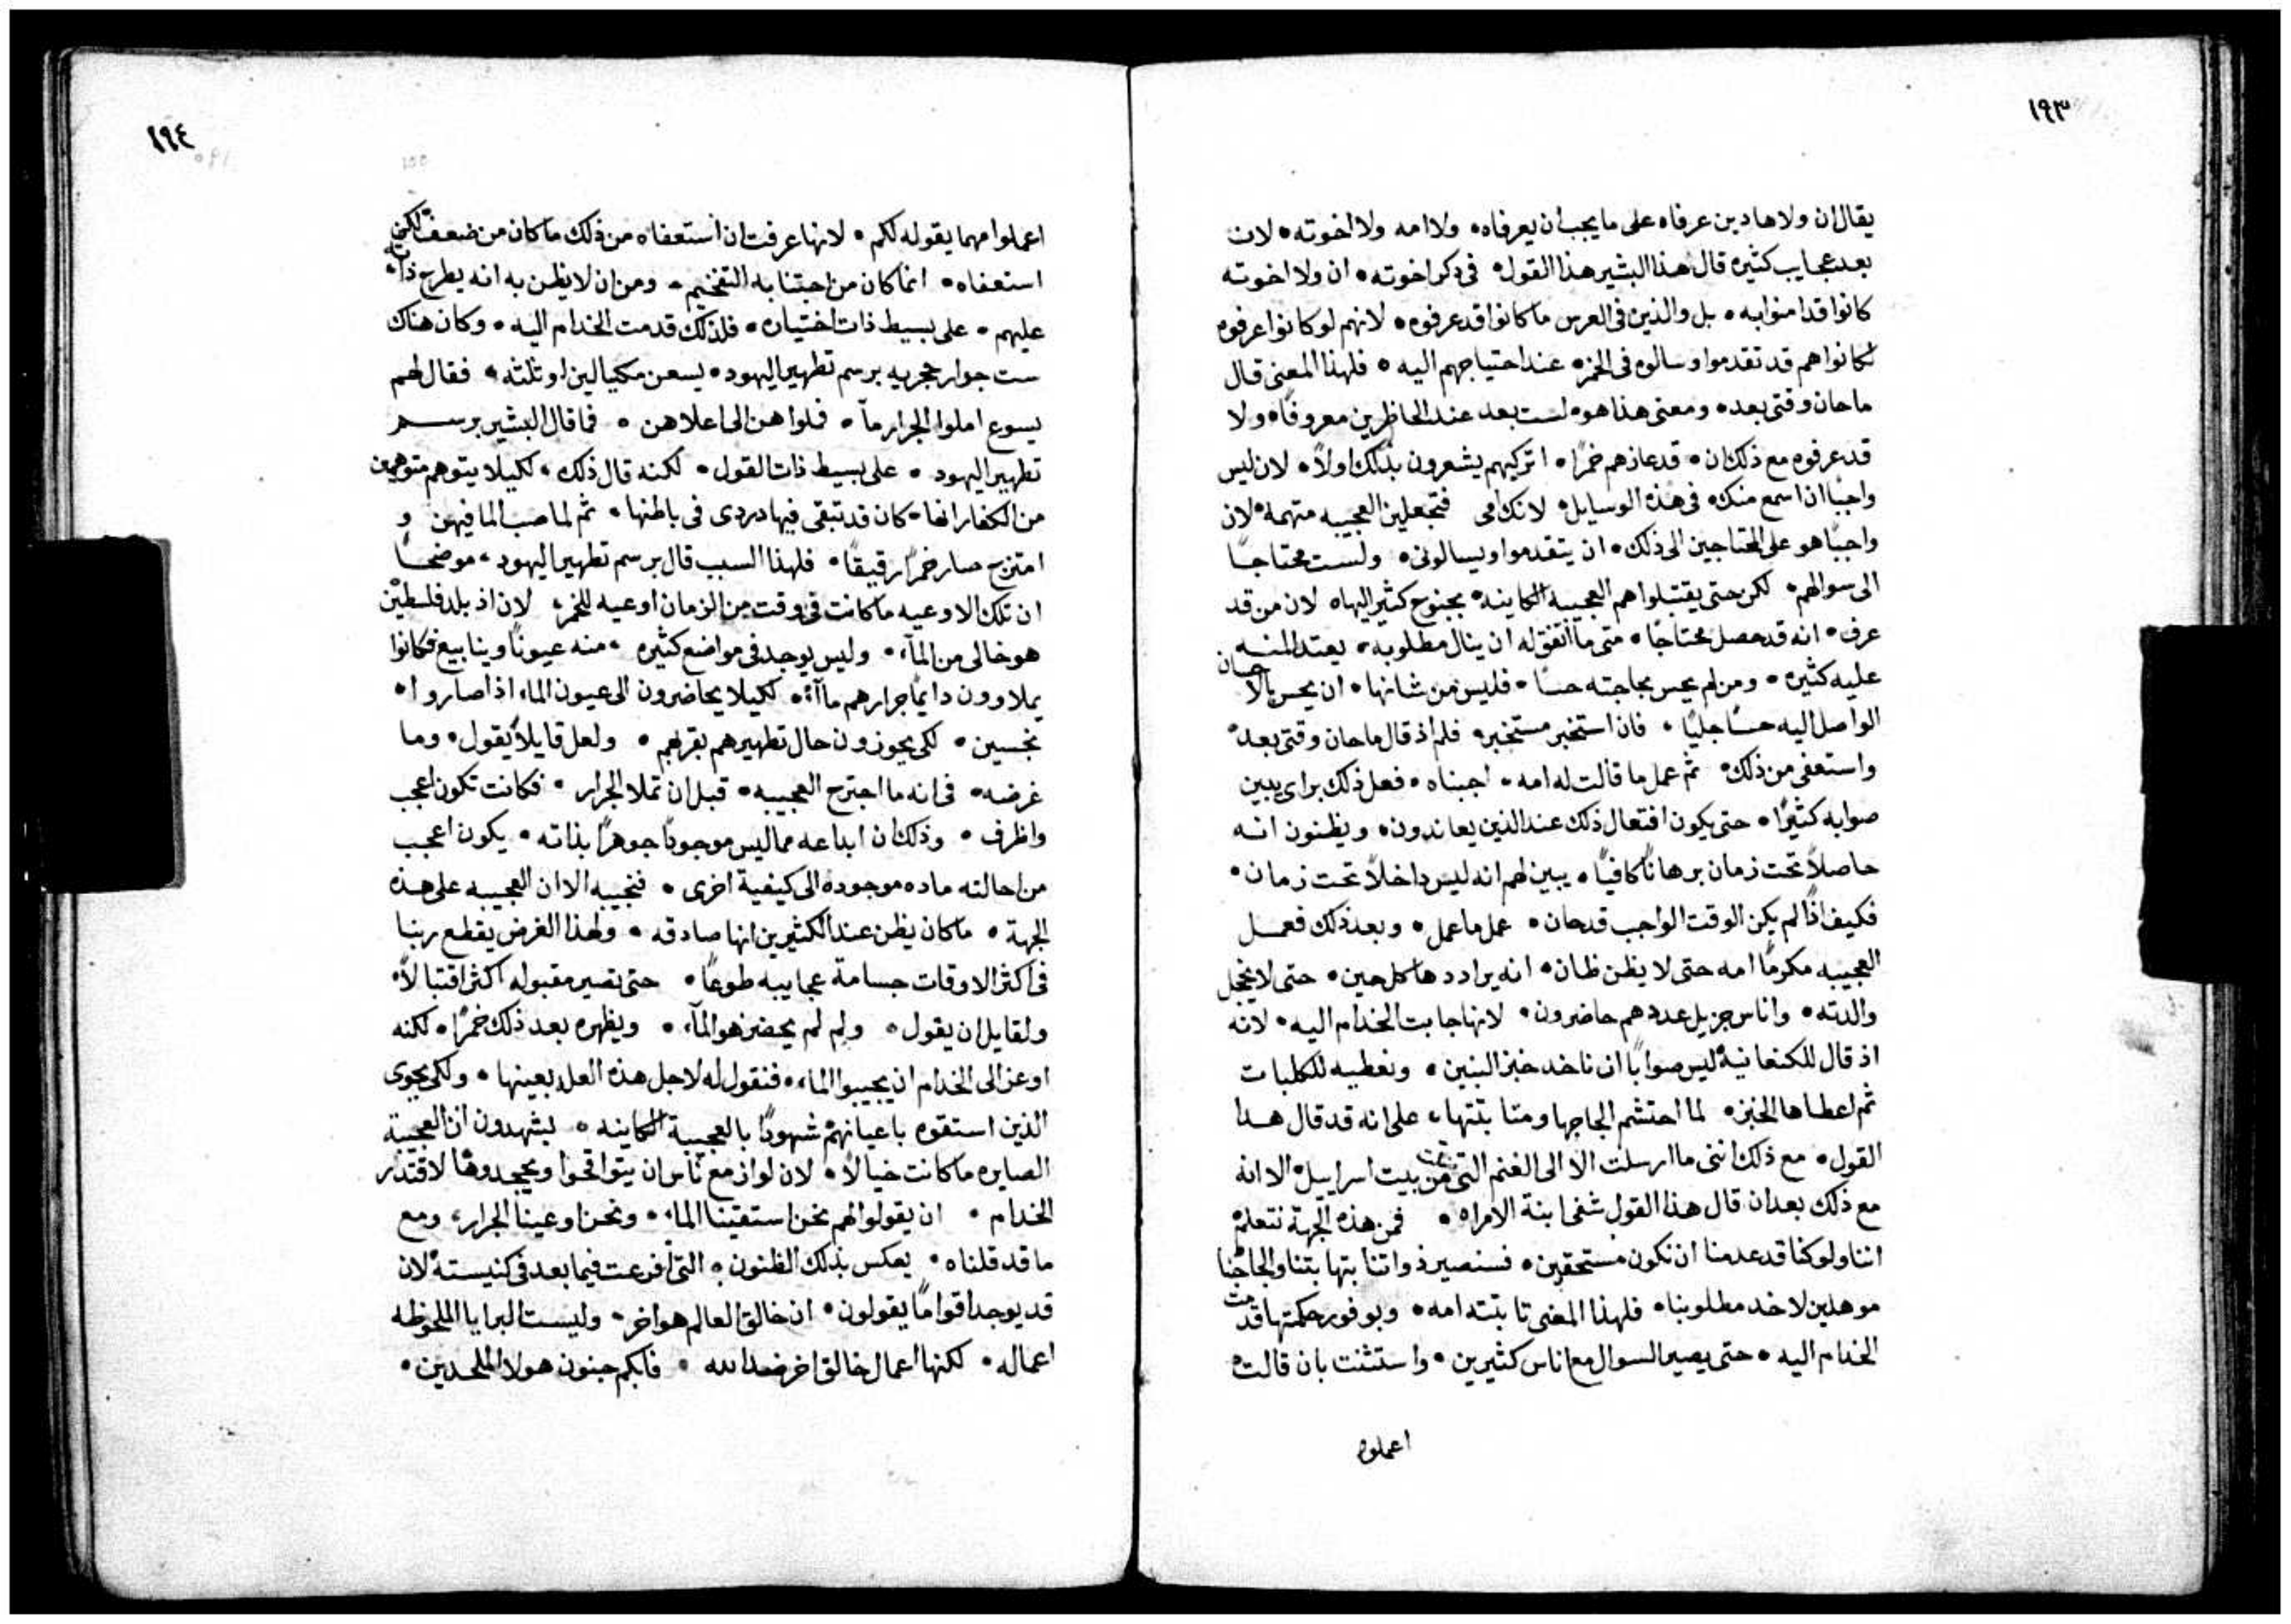 ١٩٣
يقال ان ولا هادين عرفاه على ما يجب ان يعرفاه • ولا امه ولا اخوته • لان
بعد عجايب كثيره قال هذا البشير هذا القول • في دكر اخوته • ان ولا اخوته
كانوا قد امنوا به • بل والذين في العرس ما كانوا قد عرفوه • لانهم لو كانوا عرفوه
لكانوا هم قد تقدموا وسالوه في الخمر • عند احتياجهم اليه • فلهذا المعنى قال
ما حان وقتي بعد • ومعنى هذا هو • لست بعد عند الحاظرين معروفًا • ولا
قد عرفوه مع ذلك ان • قد عازهم خمرًا • اتركيهم يشعرون بذلك اولاً • لان ليس
واجبًا ان اسمع منك • في هذه الوسايل • لانك امي فتجعلين العجيبه متهمه • لان
واجبًا هو على المحتاجين الى ذلك • ان يتقدموا ويسالوني • ولست محتاجًا
الى سوالهم • لكن حتى يقتبلوا هم العجيبه الكاينه • بجنوح كثير اليها • لان من قد
عرف • انه قد حصل محتاجًا • متى ما اتفق له ان ينال مطلوبه • يعتد المنه
عليه كثيره • ومن لم يحس بحاجته حسًا • فليس من شانها • ان يحس بالاحسان
الواصل اليه حسًا جليًا • فان استخبر مستخبر • فلم اذ قال ما حان وقتي بعد •
واستعفى من ذلك • ثم عمل ما قالت له امه • اجبناه • فعل ذلك براي يبين
صوابه كثيرًا • حتى يكون افتعال ذلك عند الذين يعاندون • ويظنون انه
حاصلاً تحت زمان برهانًا كافيًا • يبين لهم انه ليس داخلاً تحت زمان •
فكيف اذًا لم يكن الوقت الواجب قد حان • عمل ما عمل • وبعد ذلك فعمل
العجيبه مكرمًا امه حتى لا يظن ظان • انه يرادد ها كل حين • حتى لا يخجل
والدته • واناس جزيل عددهم حاضرون • لانها جابت الخدام اليه • لانه
اذ قال للكنعانية ليس صوابًا ان ناخد خبز البنين • ونعطيه للكلبات
ثم اعطاها الخبز • لما احتشم الجاجها ومثابتتها • على انه قد قال هدا
القول • مع ذلك انني ما ارسلت الا الى الغنم التي من بيت اسراييل • الا انه
مع ذلك بعد ان قال هذا القول شفى ابنة الامراه • فمن هذه الجهة نتعلم
اننا ولو كنا قد عدمنا ان نكون مستحقين • فسنصير ذواتنا بثباتتنا والجاجنا
موهلين لاخد مطلوبنا • فلهذا المعنى ثابتته امه • وبوفور حكمتها قدمت
الخدام اليه • حتى يصير السوال مع اناس كثيرين • واستثنت بان قالت
اعملوا
١٩٤
اعملوا مهما يقوله لكم • لانها عرفت ان استعفاه من ذلك ما كان من ضعف لكن
استعفاه • انما كان من اجتنابه التفخيم • ومن ان لا يظن به انه يطرح ذاته
عليهم • على بسيط ذات اختياره • فلذلك قدمت الخدام اليه • وكان هناك
ست جوار حجريه برسم تطهير اليهود • يسعن مكيالين او ثلثه • فقال لهم
يسوع املوا الجرار مآ • فملوا هن الى اعلاهن • فما قال البشير برسم
تطهير اليهود • على بسيط ذات القول • لكنه قال ذلك • لكيلا يتوهم متوهمين
من الكفار انها • كان قد تبقى فيها دردي في باطنها • ثم لما صب الما فيهن و
امتزج صار خمرًا رقيقًا • فلهذا السبب قال برسم تطهير اليهود • موضحًا
ان تلك الاوعيه ما كانت في وقت من الزمان اوعيه للخمر • لان اذ بلد فلسطين
هو خالى من المآء • وليس يوجد في مواضع كثيره • منه عيونًا وينابيع فكانوا
يملاوون دايمًا جرارهم مآء • لكيلا يحاضرون الى عيون الماء اذا صاروا •
نجسين • لكي يحوزون حال تطهيرهم بقربهم • ولعل قايلاً يقول • وما
غرضه • في انه ما اجترح العجيبه • قبل ان تملا الجرار • فكانت تكون اعجب
واظرف • وذلك ان ابداعه مما ليس موجودًا جوهرًا بذاته • يكون اعجب
من احالته ماده موجوده الى كيفية اخرى • فنجيبه الا ان العجيبه على هذه
الجهة • ما كان يظن عند الكثيرين انها صادقه • ولهذا الغرض يقطع ربنا
في اكثر الاوقات جسامة عجايبه طوعًا • حتى تصير مقبوله اكثر اقتبالاً •
ولقايل ان يقول • ولم لم يحضر هو المآء • ويظهره بعد ذلك خمرًا • لكنه
اوعز الى الخدام ان يجيبوا الماء • فنقول له لاجل هذه العله بعينها • ولكي يحوى
الذين استقوه باعيانهم شهودًا بالعجيبة الكاينه • ليشهدون ان العجيبة
الصايره ما كانت خيالاً • لان لو ازمع ناس ان يتواقحوا ويجحدوها لاقتدر
الخدام • ان يقولوا لهم نحن استقينا الماء • ونحن اوعينا الجرار • ومع
ما قد قلناه • يعكس بذلك الظنون • التي افرعت فيما بعد في كنيسته • لان
قد يوجد اقوامًا يقولون • ان خالق العالم هو اخر • وليست البرايا الملحوظه
اعماله • لكنها اعمال خالق اخر ضد الله • فابكم جنون هولا الملحدين •